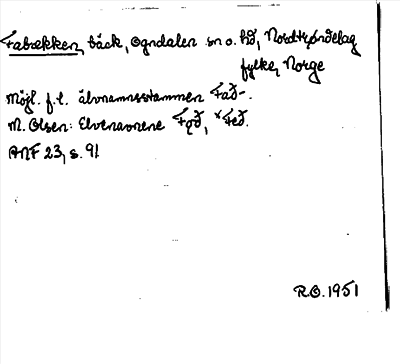 Fabækken, bäck, Ogndalen sn o. hd, Nordtrøndelag
fylke, Norge
Möjl. f.t. älvnamnsstammen Fað-.
M. Olsen: Elvenavnene Fǫð, *Feð.
ANF 23, s. 91
R.O. 1951